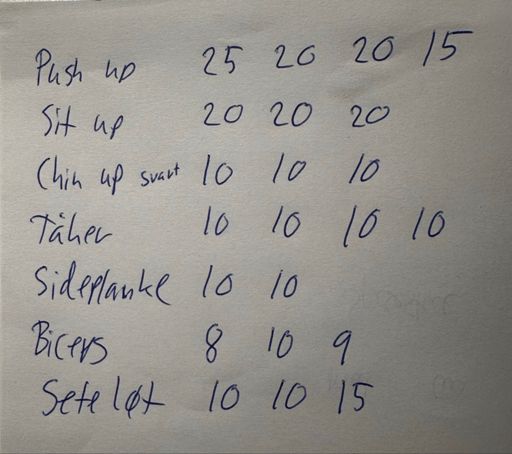 Push up 25 20 20 15
Sit up 20 20 20
Chin up svart 10 10 10
Tåhev 10 10 10 10
Sideplanke 10 10
Biceps 8 10 9
Seteløt 10 10 15